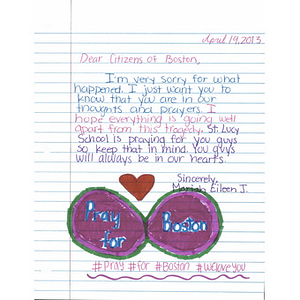 April 19, 2013
Dear Citizens of Boston,
I'm very sorry for what
happened. I just want you to
know that you are in our
thoughts and prayers. I
hope everything is going well
apart from this tragedy. St. Lucy
School is praying for you guys
so keep that in mind. You guys
will always be in our hearts.
Sincerely,
Mariah Eileen J.
Pray
for
Boston
#Pray #for #Boston #WeloveYou